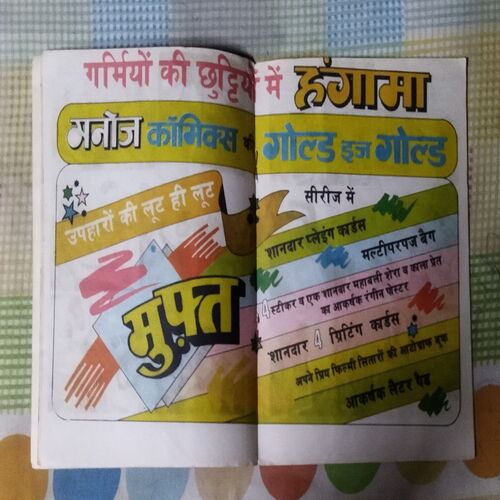 गर्मियों की छुट्टियों में हंगामा
मनोज कॉमिक्स की गोल्ड इज गोल्ड
उपहारों की लूट ही लूट
मुफ़्त
सीरीज में
शानदार प्लेइंग कार्डस
मल्टीपरपज बैग
4 स्टीकर व एक शानदार महाबली शेरा व काला प्रेत
का आकर्षक रंगीन पोस्टर
शानदार 4 ग्रिटिंग कार्डस
अपने प्रिय फिल्मी सितारों की आटोग्राफ बुक
आकर्षक लैटर पैड